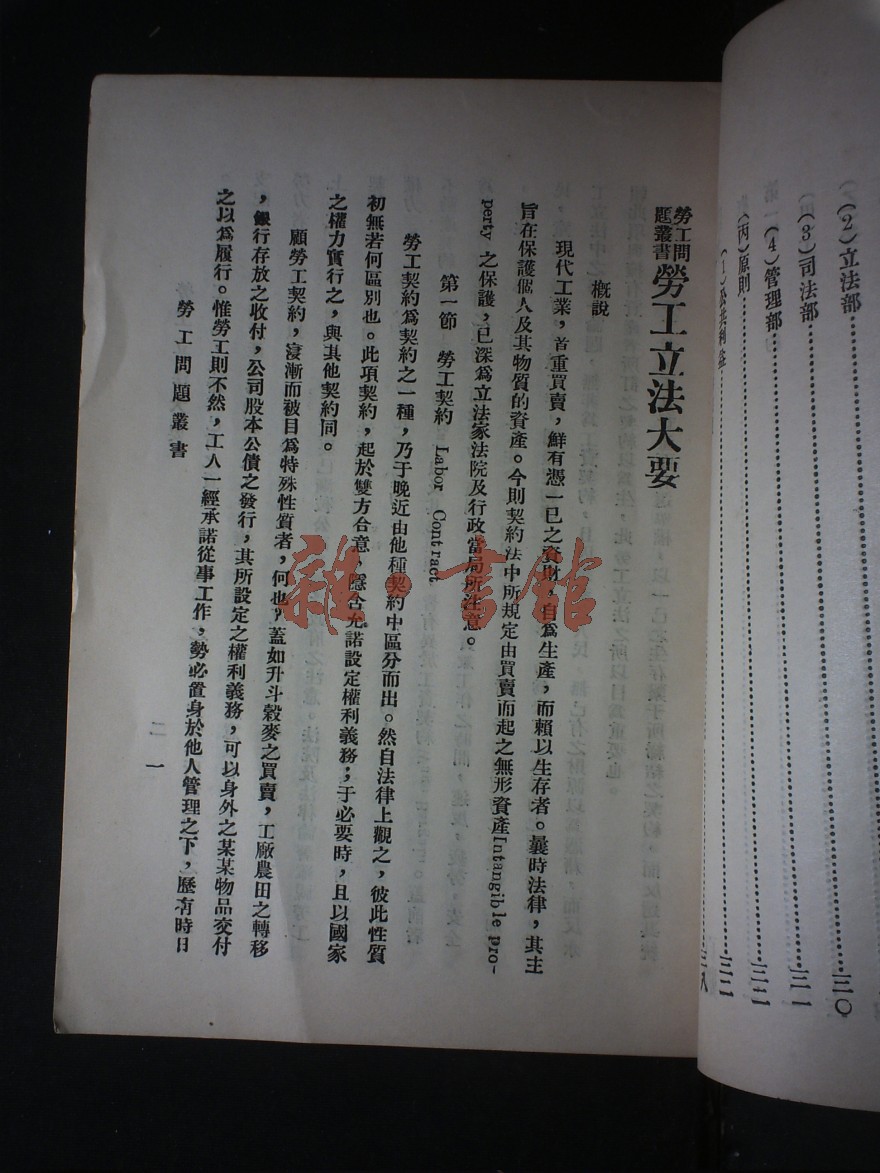 (2)立法部……三〇
(3)司法部……三一
(4)管理部……三二
(丙)原則……三二
勞工問
題叢書
勞工立法大要
槪說
現代工業，首重買賣，鮮有憑一已之資財，自爲生產，而賴以生存者。曩時法律，其主
旨在保護個人及其物質的資產。今則契約法中所規定由買賣而起之無形資產Intangible Pro-
perty 之保護，已深爲立法家法院及行政當局所注意。
第一節 勞工契約 Labor Contract
勞工契約爲契約之一種，乃于晚近由他種契約中區分而出。然自法律上觀之，彼此性質
初無若何區別也。此項契約，起於雙方合意、隱含允諾設定權利義務；于必要時，且以國家
之權力實行之，與其他契約同。
顧勞工契約，寖漸而被目爲特殊性質者，何也？蓋如升斗穀麥之買賣，工廠農田之轉移
，銀行存放之收付，公司股本公債之發行，其所設定之權利義務，可以身外之某某物品交付
之以爲履行。惟勞工則不然，工人一經承諾從事工作，勢必置身於他人管理之下，歷有時日
勞工問題叢書
二一
雜·書館